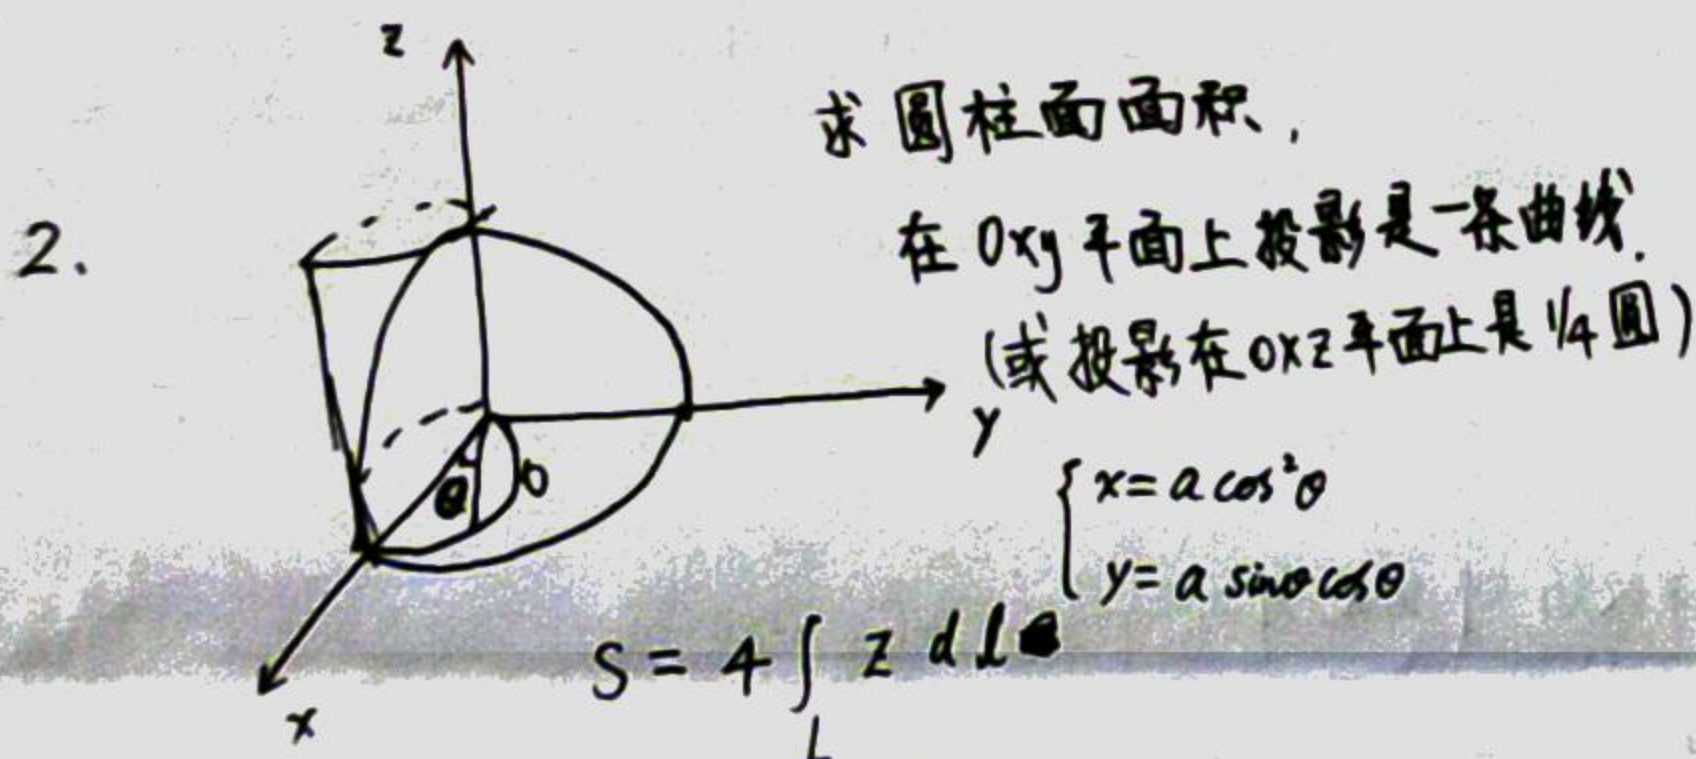 z
求圆柱面面积,
2.
在 Oxy 平面上投影是一条曲线.
(或投影在 OXZ 平面上是 1/4 圆)
y
θ
x = a cos²θ
y = a sinθ cosθ
S = 4 ∫ z dl
L
x